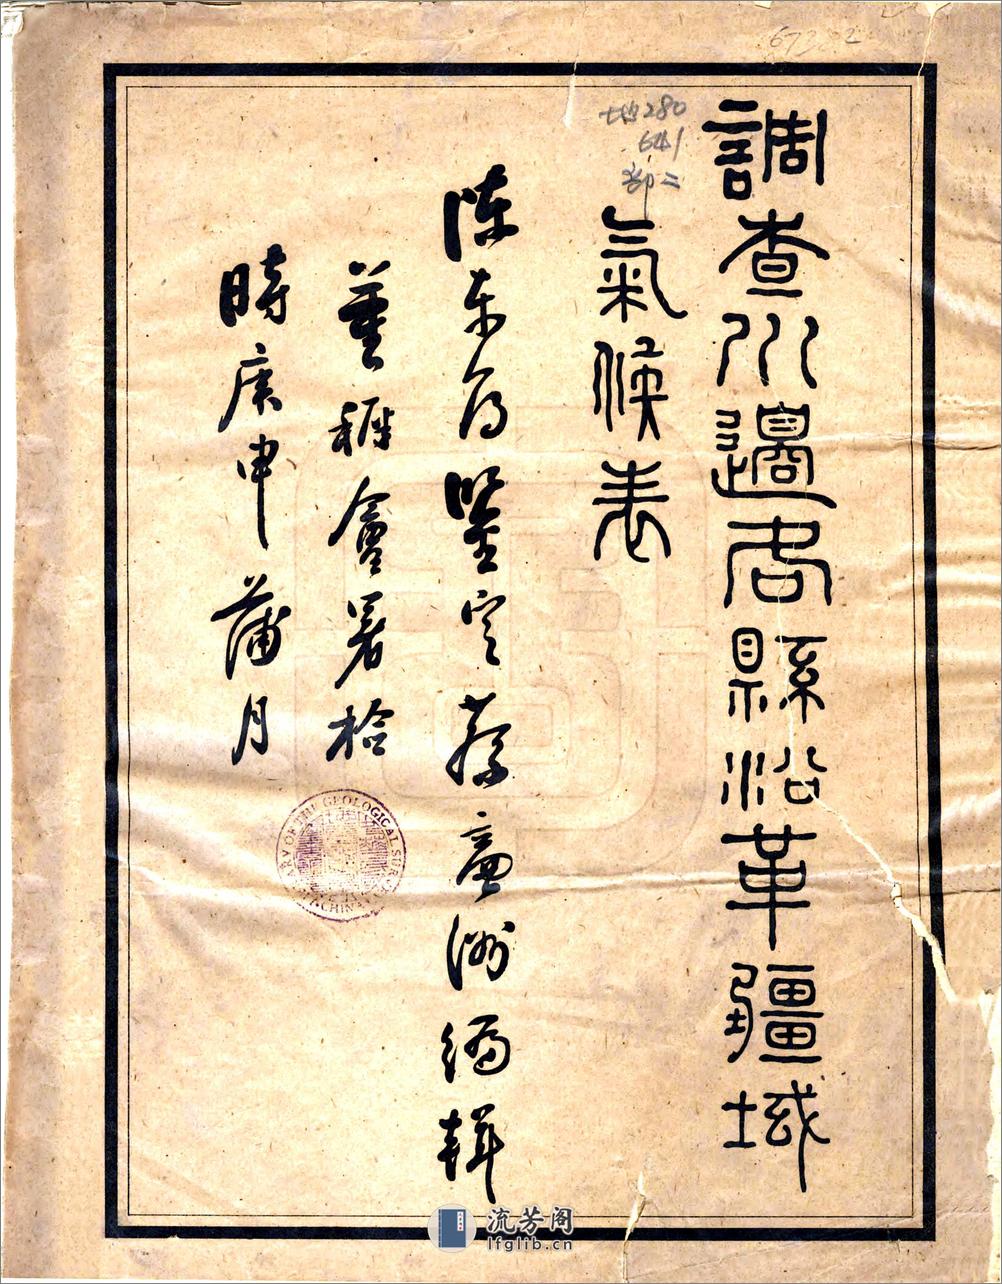 調查川邊各縣沿革疆域
氣候表
陳東府鑒定蔡廉洲編輯
董 會署檢
時庚申蒲月
地280
641
部二
67282
LIBRARY OF THE GEOLOGICAL SURVEY OF CHINA
流芳阁
lfglib.cn